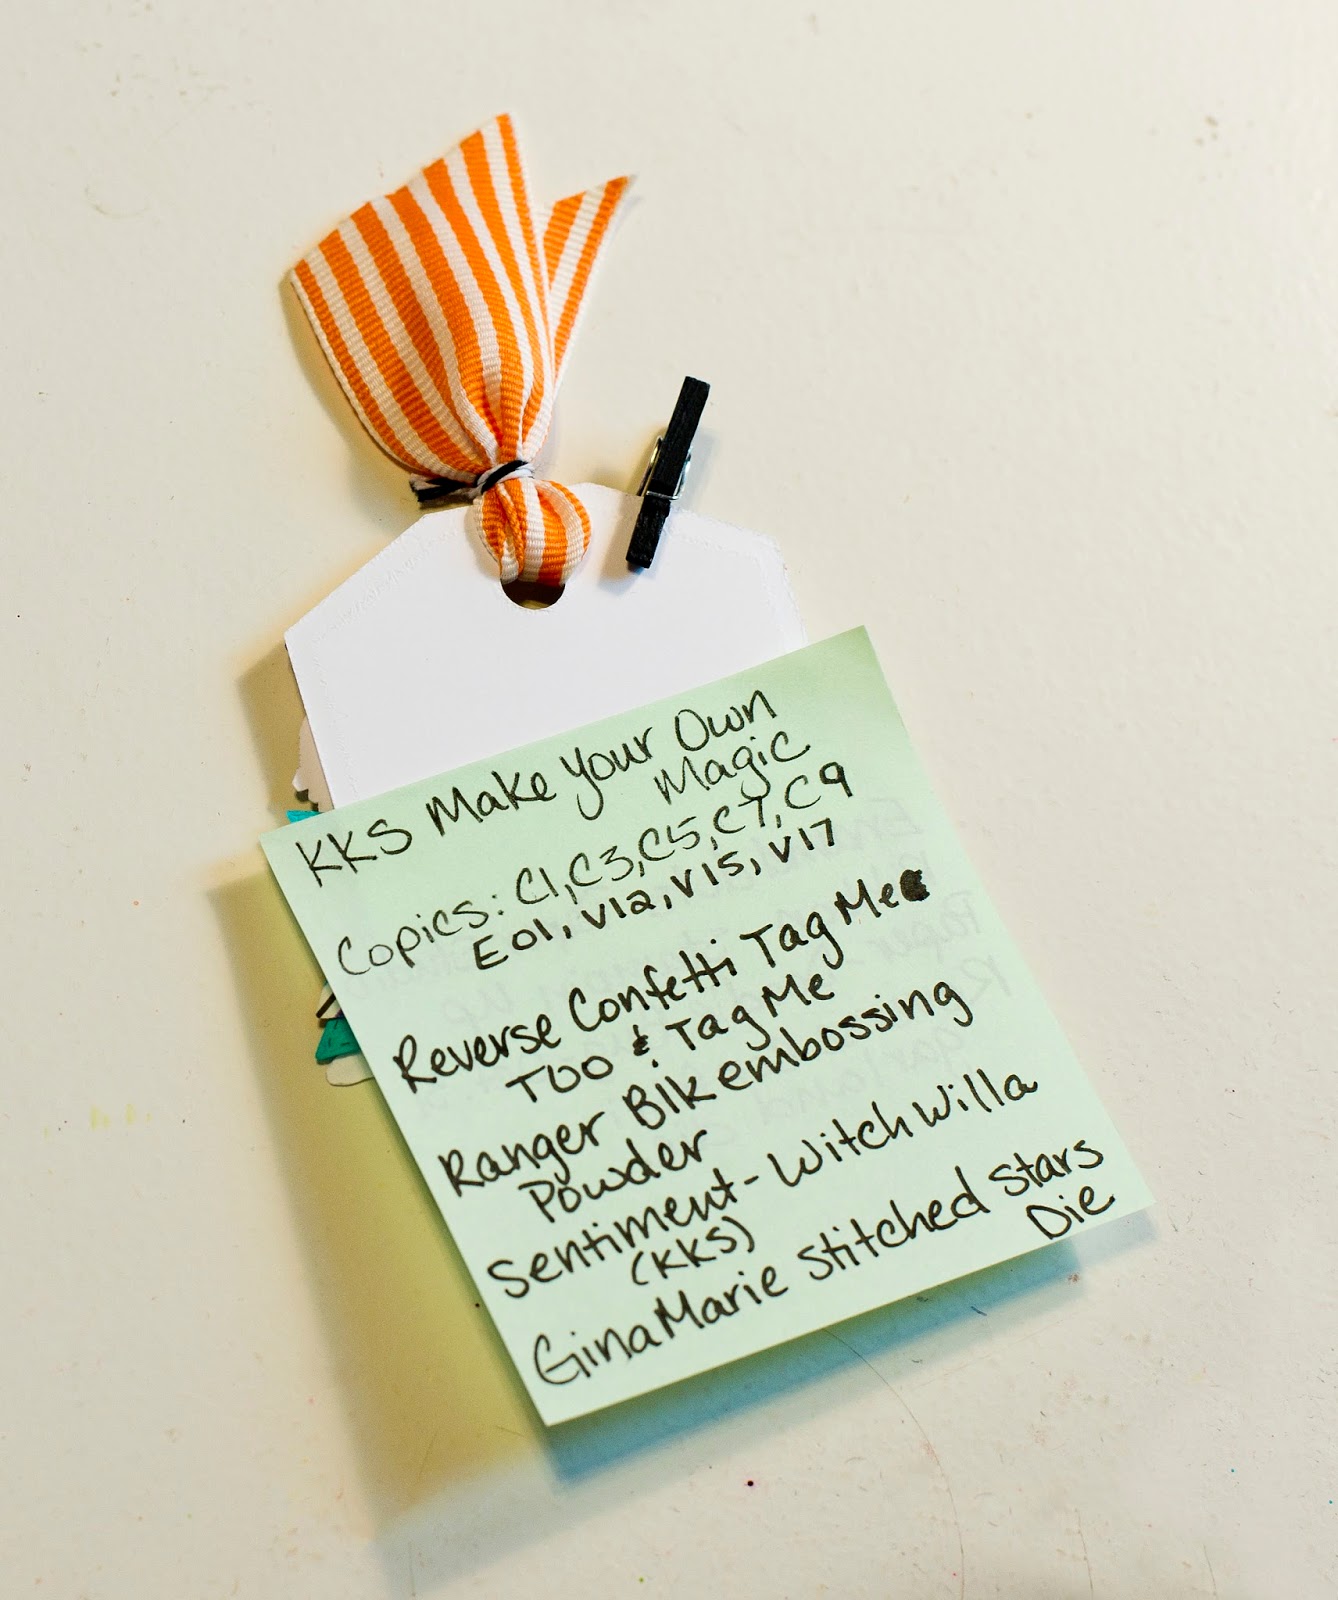 KKS Make Your Own
Magic
Copics: C1, C3, C5, C7, C9
E01, V12, V15, V17
Reverse Confetti Tag Me
Too & Tag Me
Ranger Blk embossing
Powder
Sentiment - Witch Willa
(KKS)
Gina Marie stitched stars
Die